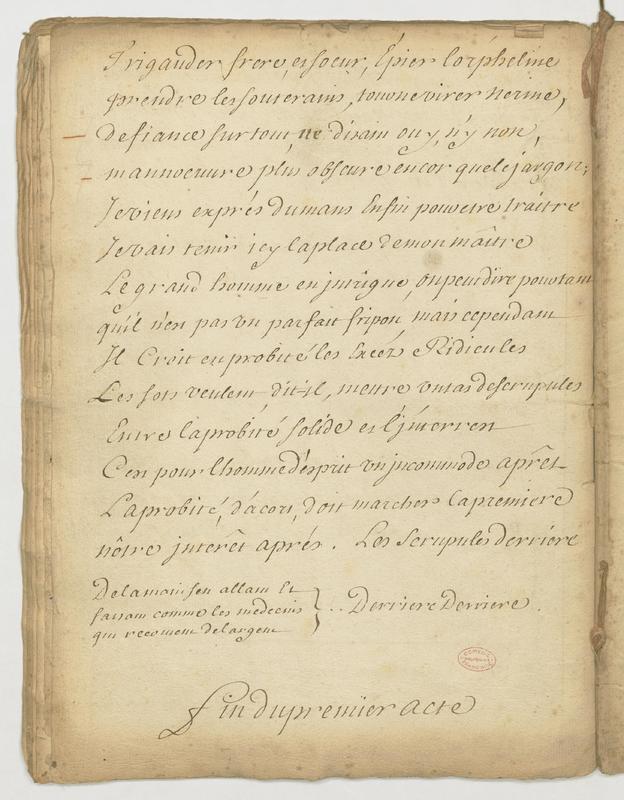 Frigauder frere, et soeur, Épier l'orpheline
prendre les souterains, tourne virer nerine,
defiance sur tout ne disant ouy, n'y non,
mannoeuvre plus obscure encor que le jargon;
Je viens exprés du mans Enfin pour etre traitre
Je vais tenir icy la place de mon maître
Le grand homme en jntrigue, on peut dire pourtant
qu'il n'est pas un parfait fripon, mais cependant
Il Croit en probité les Excés Ridicules
Les sots veulent dit-il, mettre un tas de scrupules
Entre la probité solide et l'jnterrest
C'est pour l'homme d'esprit un jncommode aprêt
La probité, d'acort, doit marcher la premiere
nôtre jnterêt aprés. Les Scrupules derriére
De la main s'en allant et
faisant comme les medecins
qui recoivent de l'argent
} .. Derriere Derriere.
COMEDIE FRANCAISE
fin du premier acte